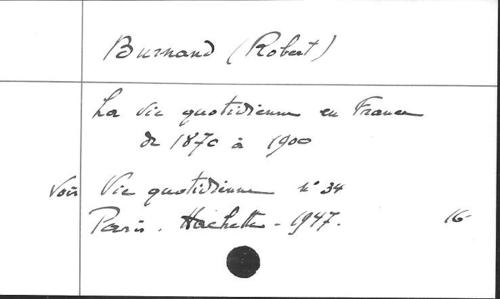 Burnand (Robert)
La vie quotidienne en France
de 1870 à 1900
Voir Vie quotidienne n° 34
Paris. Hachette - 1947. 16-